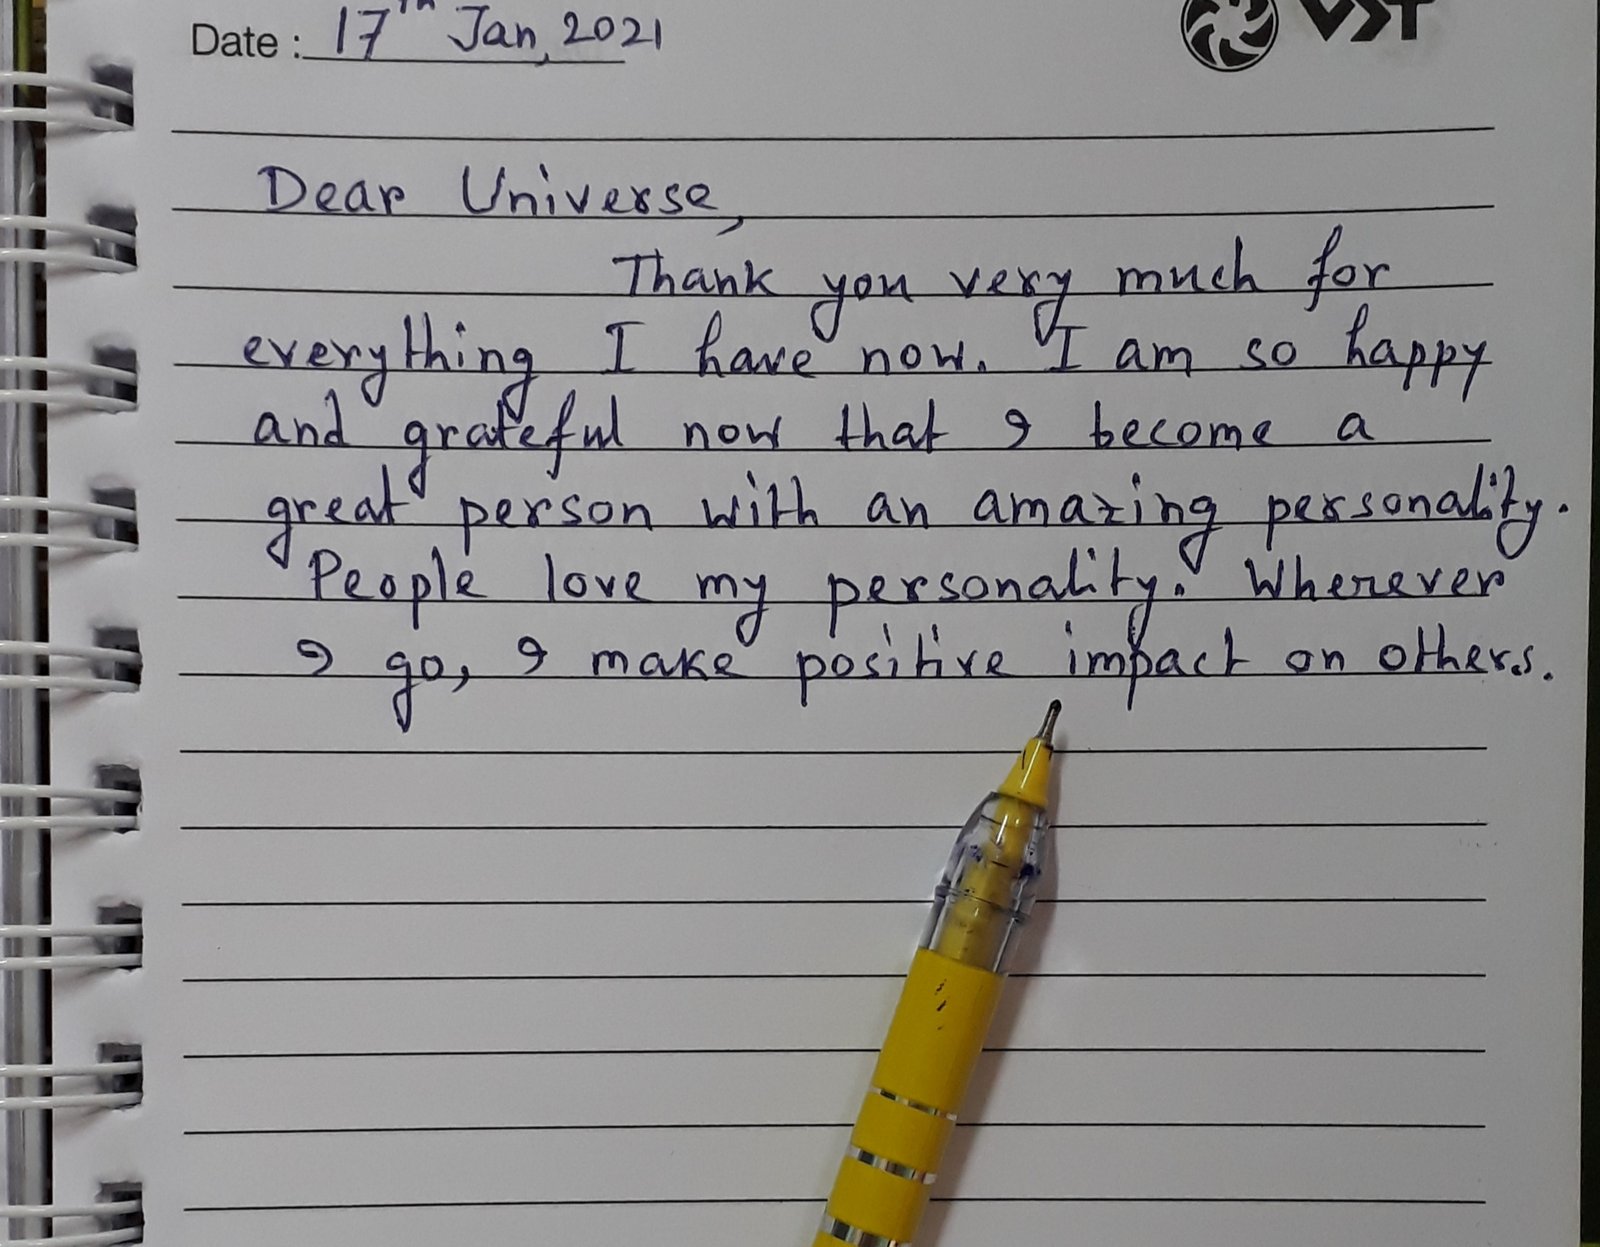 Date: 17th Jan, 2021
VST
Dear Universe,
Thank you very much for
everything I have now. I am so happy
and grateful now that I become a
great person with an amazing personality.
People love my personality. Wherever
I go, I make positive impact on others.